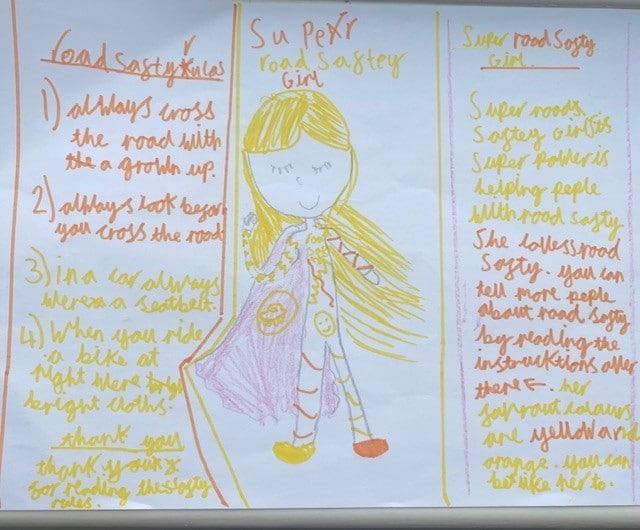 road Sasty Rules
1) always cross
the road with
the a grown up.
2) always look before
you cross the road
3) in a car always
were a seatbelt.
4) When you ride
a bike at
night were bright
bright cloths.
thank you
thank you
for reading the sasty
rules.
Super
road sastey
Girl
Super road Sasty
Girl.
Super roads
Sastey Girls is
Super Power is
helping peple
with road sasty
She loves road
Sasty. you can
tell more peple
about road sasty
by reading the
instrucktions over
there. her
favrout colours
are yellow and
orange. you can
be like her to.